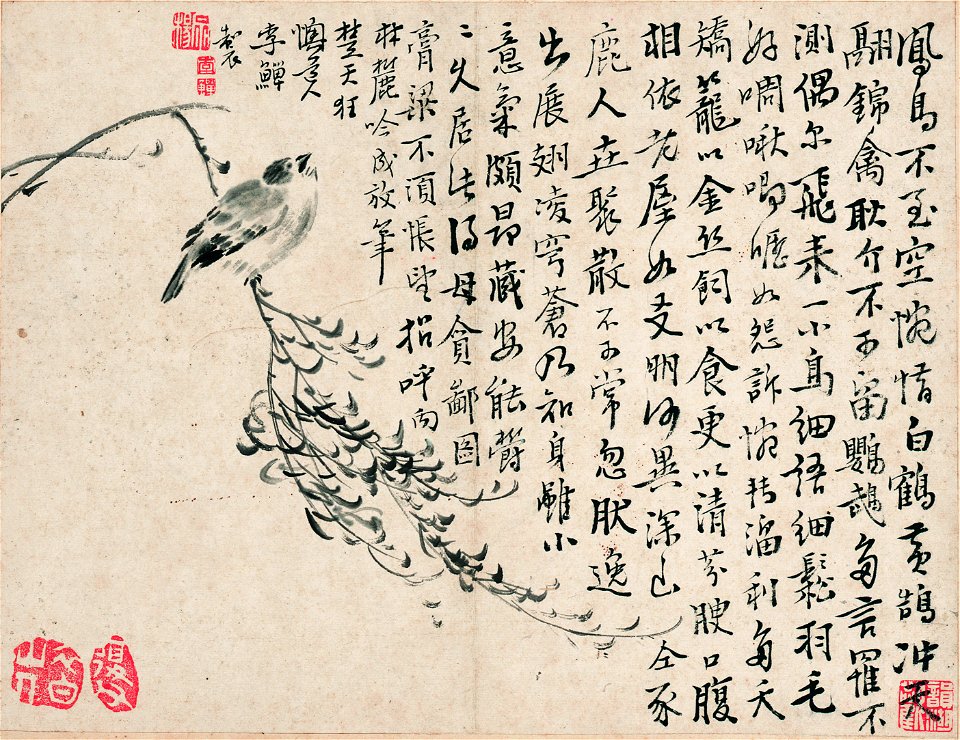 鳳鳥不至空惋惜白鶴黃鵠冲天
翮錦禽耿介不可留鸚鵡多言罹不
測偶尔飛来一小鳥細語細鬆羽毛
好啁啾唧嚦如怨訴惋轉溜利多夭
矯籠以金丝飼以食更以清芬腴口腹
相依老屋如友朋何異深山仝豕
鹿人丗聚散不可常忽肰逸
出展翅凌穹蒼乃知身雖小
意氣頗昂藏安能欝
二久居此得毋貪鄙圖
膏粱不須悵望招呼向
林麓吟成放筆
楚天狂
懊道人
李鱓
製